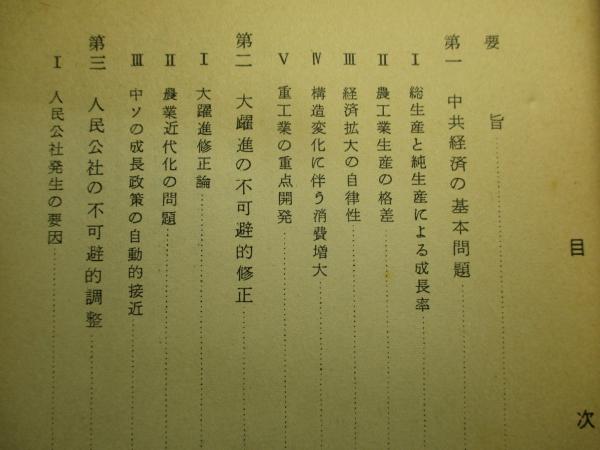 目次
要旨
第一 中共経済の基本問題
Ⅰ 総生産と純生産による成長率
Ⅱ 農工業生産の格差
Ⅲ 経済拡大の自律性
Ⅳ 構造変化に伴う消費増大
Ⅴ 重工業の重点開発
第二 大躍進の不可避的修正
Ⅰ 大躍進修正論
Ⅱ 農業近代化の問題
Ⅲ 中ソの成長政策の自動的接近
第三 人民公社の不可避的調整
Ⅰ 人民公社発生の要因